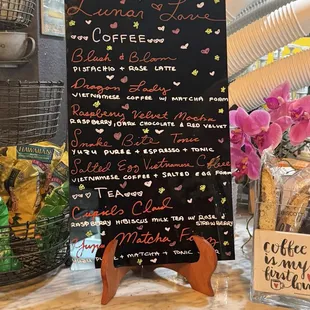 Lunar Love
COFFEE
Blush & Bloom
PISTACHIO + ROSE LATTE
Dragon Lady
VIETNAMESE COFFEE W/ MATCHA FOAM
Raspberry Velvet Mocha
RASPBERRY, DARK CHOCOLATE & RED VELVET
Snake Bite Tonic
YUZU PUREE + ESPRESSO + TONIC
Salted Egg Vietnamese Coffee
VIETNAMESE COFFEE + SALTED EGG FOAM
TEA
Cupid's Cloud
RASPBERRY HIBISCUS MILK TEA W/ ROSE & STRAWBERRY
Matcha
+ MATCHA + TONIC
HAWAIIAN
coffee
is my
first love